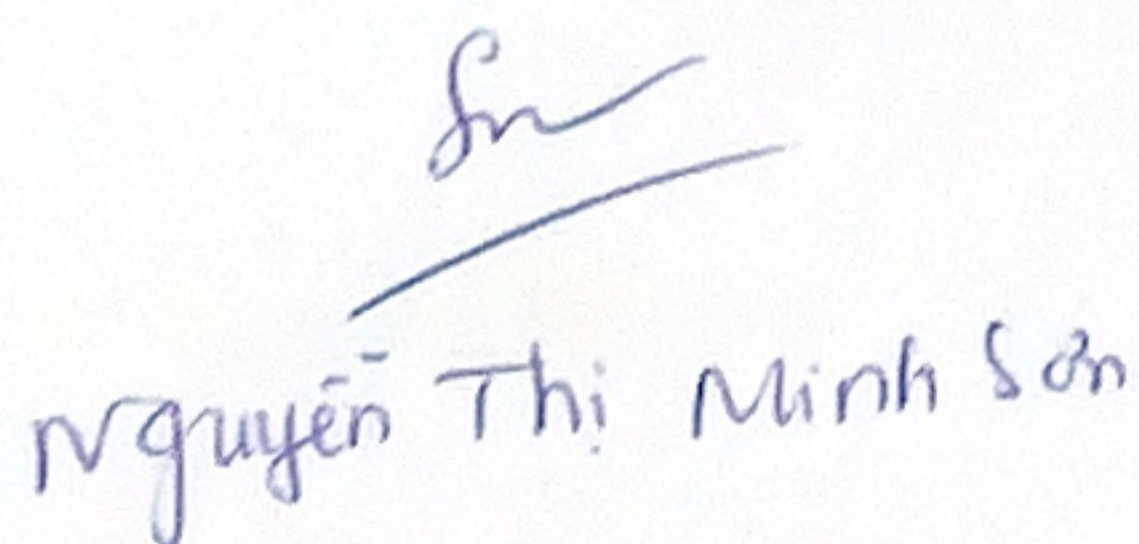 Sơn
Nguyễn Thị Minh Sơn